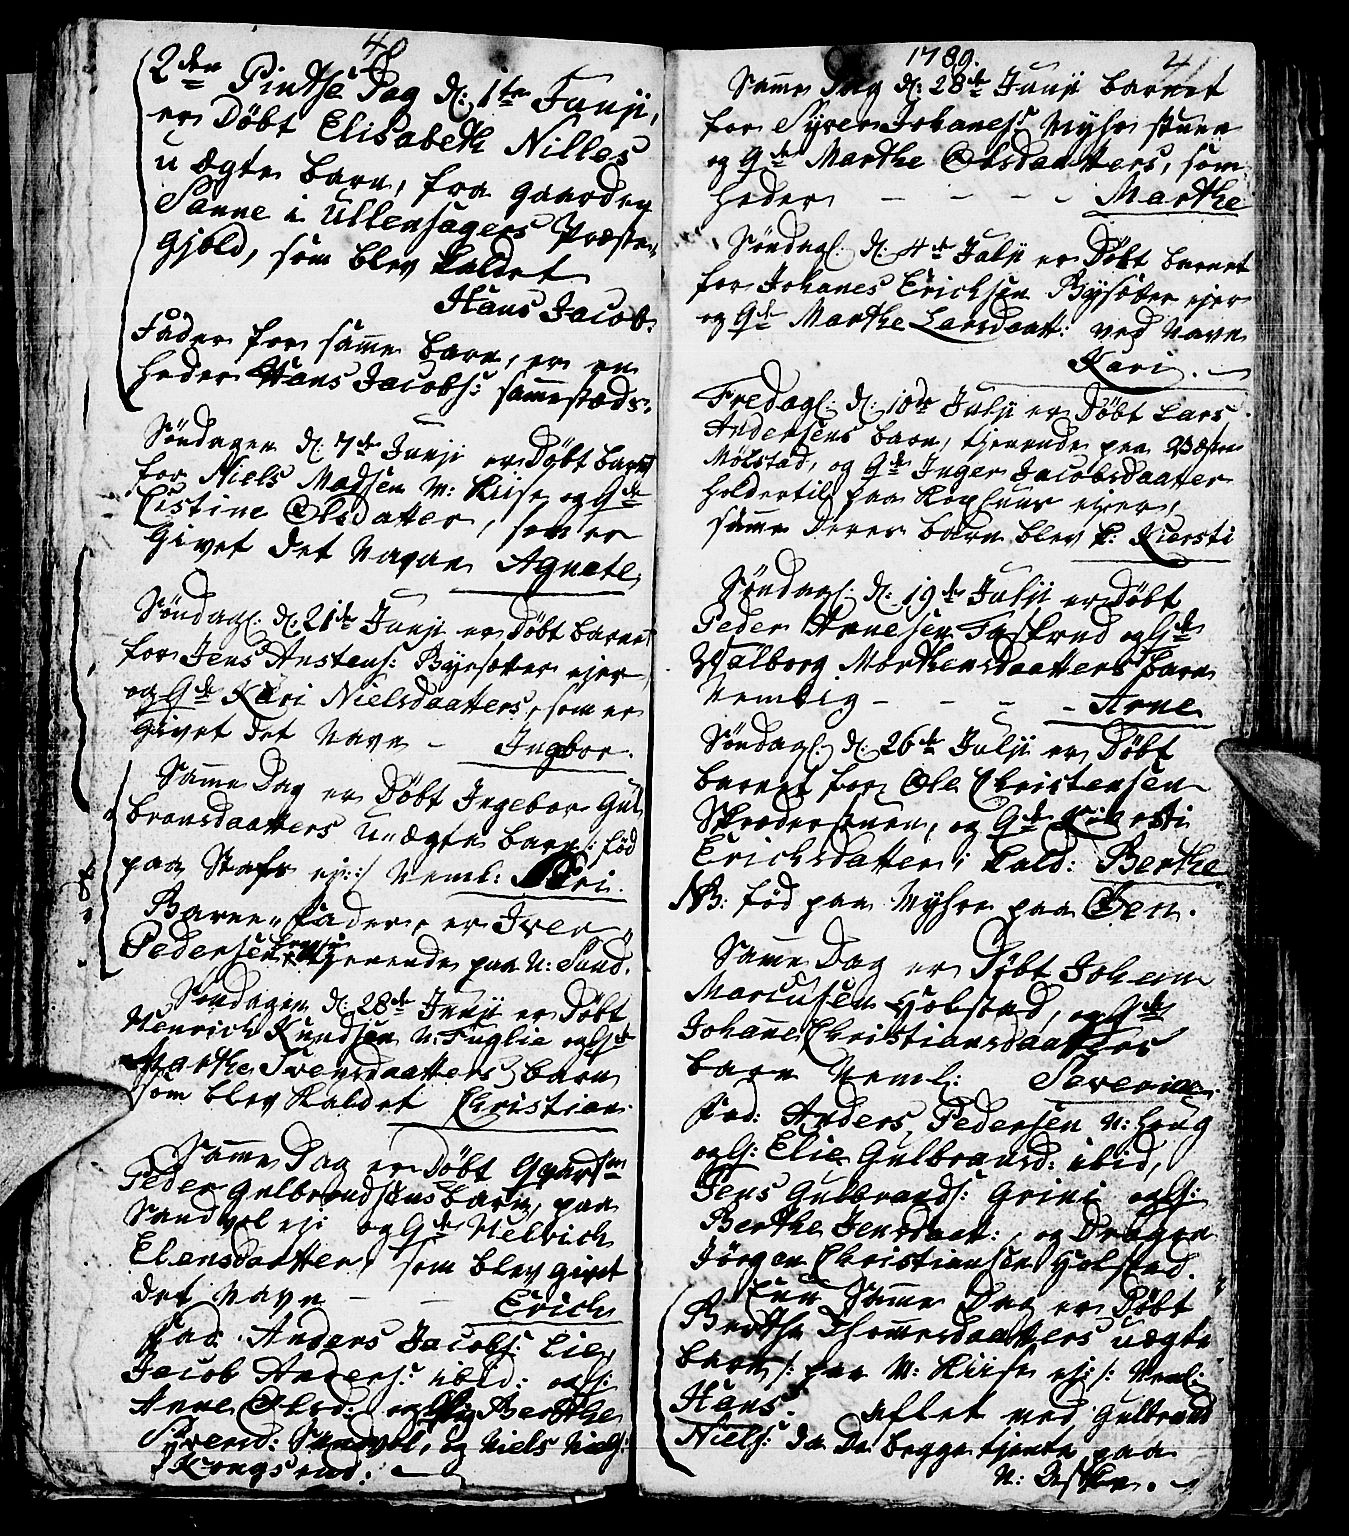 40
2den Pintse Dag d: 1te Junji,
er Døbt Elisabeth Nilles
u ægte barn, fra gaarden
Sanne i Ullensagers Præste„
gjeld, som blev kaldet
Hans Jacob.
Fader for samme barn, er en
heder Hans Jacobs: sammestæds.
Søndagen d: 7de Junji er Døbt barnet
for Niels Madsen N: Kiise og Qde
Cistine Olsdatter, som er
givet det Navn Agnete,
Søndag: d: 21de Junji er Døbt barnet
for Jens Anstens: Byesæter ejer
og Qde Kari Nielsdaatters, som er
givet det Navn - Ingbor.
Samme Dag er Døbt Ingebor Gul„
bransdaatters U„ægte barn /: fød
paa ej: :/ Neml: Kari.
Barne„fader, er Iver„
Pedersen tjenende paa N: Sund.
Søndagen d: 28de Junji er Døbt
Henrich Knudsen N: Fuglie og Qde
Marthe Svensdaatters barn
som blev kaldet Christian.
Samme Dag er Døbt
Peder Gulbrandsens barn, paa
Sandvol ej: og Qde Helvich
Elensdaatter, som blev givet
det Navn - - Erich
Fad: Anders Jacobs: Lie,
Jacob Anders: ibid: og
Anne Olsd: og Berthe
Syversd: Sandvol, og Niels Niels:
Kongsrud:
1789. 41
Samme Dag d: 28de Junji barnet
for Syver Johanes: Myhrstuen
og Qde Marthe Olsdaatters, som
heder - - - - Marthe
Søndag: d: 4de Julji er Døbt barnet
for Johanes Erichsen Bysæter ejer
og Qde Marthe Larsdaatt: ved Navn
Kari.
Fredag: d: 10de Julji er Døbt Lars
Andersens barn, tjenende paa Westre
Mølstad, og Qde Inger Jacobsdaatter
holdertil paa ejer,
samme Deres barn blev k: Kiersti
Søndag: d: 19de Julji er Døbt
Peder Arnesen Faskrud og Qde
Walborg Morthensdaatters barn
Nemlig - - - - Arne
Søndag: d: 26de Julji er Døbt
barnet for Ole Christensen
Skrederstuen, og Qde Kiersti
Erichsdatter; kald: Berthe
NB: fød paa Myhre paa Øen.
Samme Dag er Døbt Johan
Marcusen Holstad, og Qde
Johanne Christiansdaatters
barn Neml: Severine
Fad: Anders Pedersen N: Houg
og Q: Elie Gulbransd: ibid,
Jens Gulbrands: Grini og Q:
Berthe Jensdaat:, og Dragon
Jørgen Christiansen Holstad.
Samme Dag er Døbt
Berthe Thommesdaatters uægte
barn /: paa N: Kiise ej: :/ Neml:
Hans. Aflet med Gulbrand
Niels: da De begge tjente paa
N: Aske.